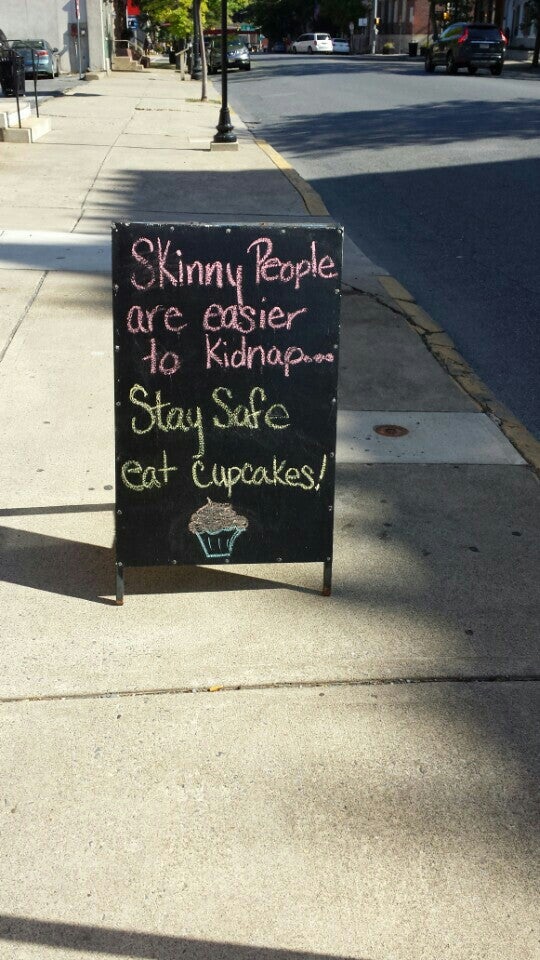 Skinny People
are easier
to Kidnap...
Stay Safe
eat cupcakes!